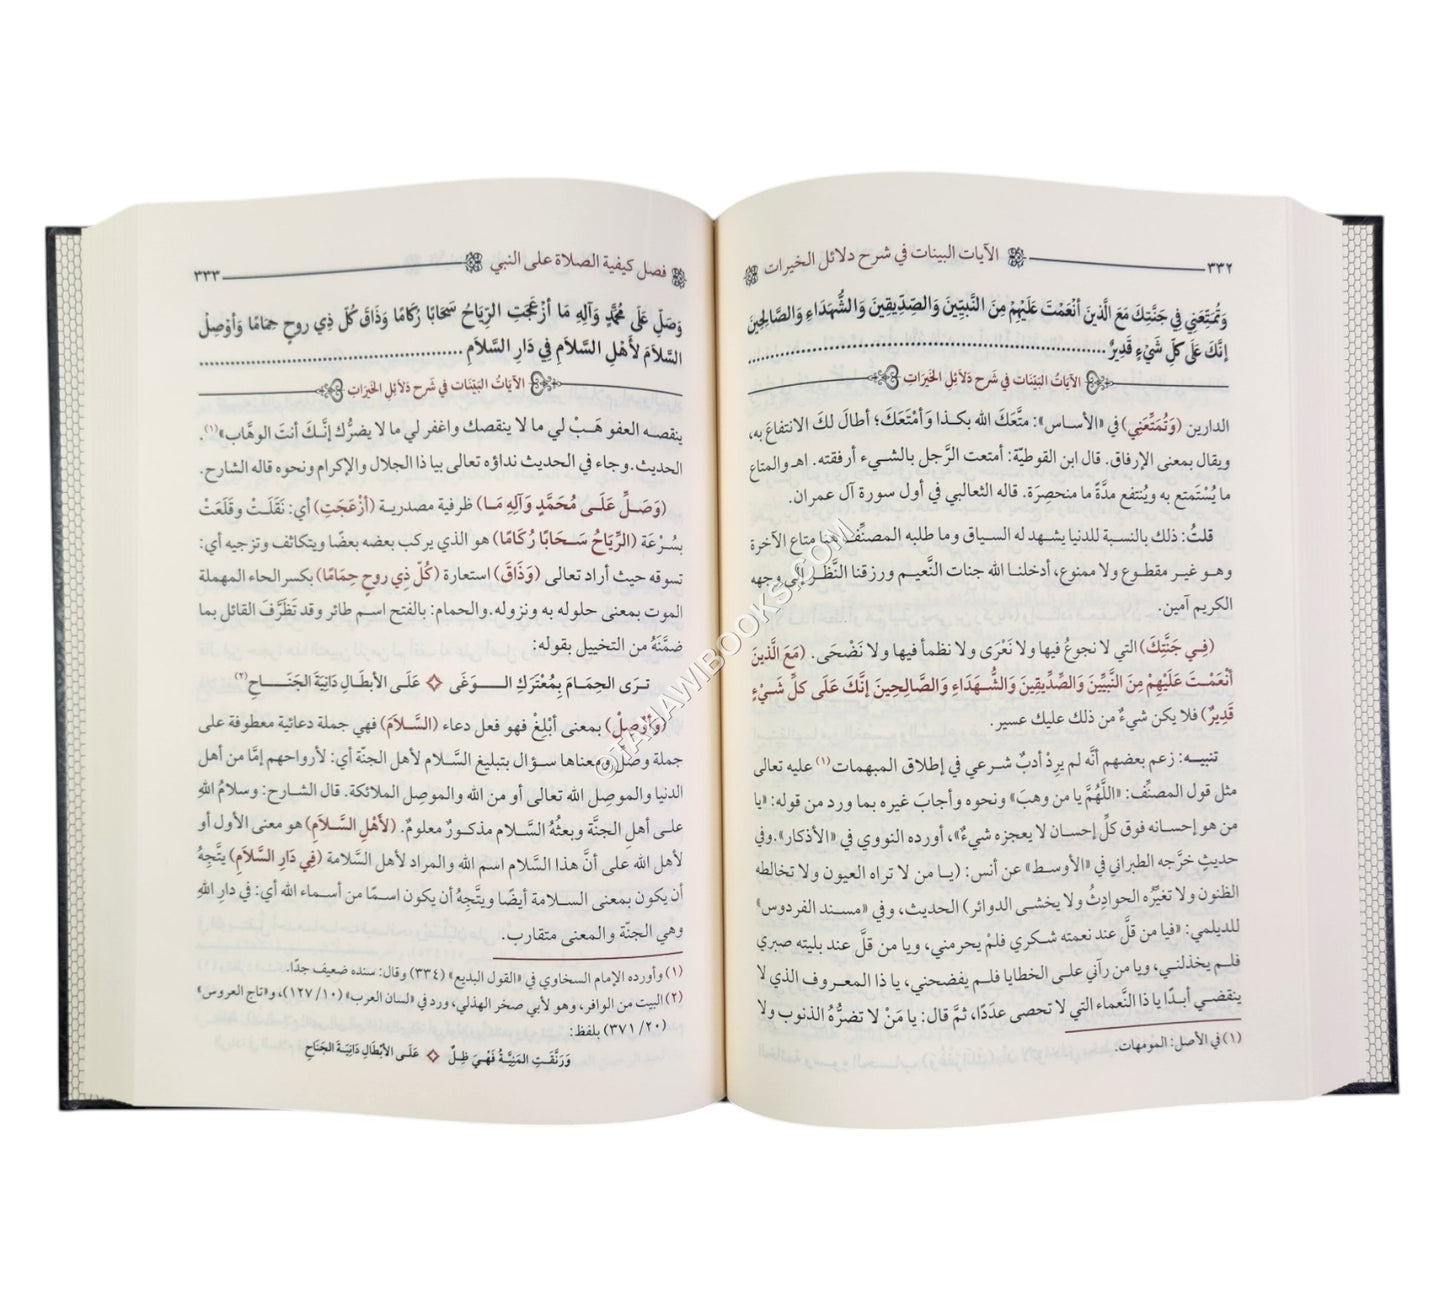 ٣٣٢ الآيات البينات في شرح دلائل الخيرات
وَتُمَتِّعَنِي فِي جَنَّتِكَ مَعَ الَّذِينَ أَنْعَمْتَ عَلَيْهِمْ مِنَ النَّبِيِّينَ وَالصِّدِّيقِينَ وَالشُّهَدَاءِ وَالصَّالِحِينَ
إِنَّكَ عَلَى كلِّ شَيْءٍ قَدِيرٌ
الآيَاتُ البَيِّنَات فِي شَرح دَلَائِلِ الخَيرَاتِ
الدارين (وَتُمَتِّعَنِي) في «الأساس»: متَّعَكَ الله بكذا وَأمْتَعَكَ؛ أطالَ لكَ الانتفاعَ به،
ويقال بمعنى الإرفاق. قال ابن القوطيّة: أمتعت الرَّجل بالشيء أرفقته. اهـ والمتاع
ما يُسْتَمتع به ويُنتفع مدَّةً ما منحصِرَة. قاله الثعالبي في أول سورة آل عمران.
قلتُ: ذلك بالنسبة للدنيا يشهد له السياق وما طلبه المصنِّف هنا متاع الآخرة
وهو غير مقطوع ولا ممنوع، أدخلنا الله جنات النَّعيم ورزقنا النَّظر إلى وجهه
الكريم آمين.
(فِي جَنَّتِكَ) التي لا نجوعُ فيها ولا نَعْرَى ولا نظمأ فيها ولا نَضْحَى. (مَعَ الَّذِينَ
أَنْعَمْتَ عَلَيْهِمْ مِنَ النَّبِيِّينَ وَالصِّدِّيقِينَ وَالشُّهَدَاءِ وَالصَّالِحِينَ إنَّكَ عَلَى كلِّ شَيْءٍ
قَدِيرٌ) فلا يكن شيءٌ من ذلك عليك عسير.
تنبيه: زعم بعضهم أنَّه لم يرِدْ أدبٌ شرعي في إطلاق المبهمات (١) عليه تعالى
مثل قول المصنِّف: «اللَّهُمَّ يا من وهبَ» ونحوه وأجابَ غيره بما ورد من قوله: «يا
من هو إحسانه فوق كلِّ إحسان لا يعجزه شيءٌ»، أورده النووي في «الأذكار».وفي
حديثٍ خرَّجه الطبراني في «الأوسط» عن أنس: (يا من لا تراه العيون ولا تخالطه
الظنون ولا تغيِّره الحوادِثُ ولا يخشى الدوائر) الحديث، وفي «مسند الفردوس»
للديلمي: «فيا من قلَّ عند نعمته شكري فلمْ يحرمني، ويا من قلَّ عند بليته صبري
فلم يخذلني، ويا من رآني على الخطايا فلم يفضحني، يا ذا المعروف الذي لا
ينقضي أبدًا يا ذا النَّعماء التي لا تحصى عدَدًا، ثمَّ قال: يا مَنْ لا تضرُّهُ الذنوب ولا
(١) في الأصل: المومهات.
فصل كيفية الصلاة على النبي ٣٣٣
وَصَلِّ عَلَى مُحَمَّدٍ وَآلِهِ مَا أَزْعَجَتِ الرِّيَاحُ سَحَابًا رُكَامًا وَذَاقَ كُلّ ذِي روحٍ حِمَامًا وَأوْصِلْ
السَّلاَمَ لأَهْلِ السَّلاَمِ فِي دَارِ السَّلاَمِ
الآيَاتُ البَيِّنَات فِي شَرح دَلَائِلِ الخَيرَاتِ
ينقصه العفو هَبْ لي ما لا ينقصك واغفر لي ما لا يضرُّك إنَّكَ أنتَ الوهَّاب» (١).
الحديث. وجاء في الحديث نداؤه تعالى بيا ذا الجلال والإكرام ونحوه قاله الشارح.
(وَصَلِّ عَلَى مُحَمَّدٍ وَآلِهِ مَا) ظرفية مصدرية (أزْعَجَتِ) أي: نَقَلَتْ وقَلَعَتْ
بسُرْعَة (الرِّيَاحُ سَحَابًا رُكَامًا) هو الذي يركب بعضه بعضًا ويتكاثف وتزجيه أي:
تسوقه حيث أراد تعالى (وَذَاقَ) استعارة (كُلّ ذِي روحٍ حِمَامًا) بكسر الحاء المهملة
الموت بمعنى حلوله به ونزوله. والحمام: بالفتح اسم طائر وقد تَظَرَّفَ القائل بما
ضمَّنَهُ من التخييل بقوله:
ترَى الحِمَامَ بِمُعْتَرَكِ الوَغَى عَلَى الأبطَالِ دَانِيَةَ الجَنَاحِ (٢)
(وَأوْصِلْ) بمعنى أبْلِغْ فهو فعل دعاء (السَّلاَمَ) فهي جملة دعائية معطوفة على
جملة وصلّ ومعناها سؤال بتبليغ السَّلام لأهل الجنّة أي: لأرواحهم إمَّا من أهل
الدنيا والموصِل الله تعالى أو من الله والموصِل الملائكة. قال الشارح: وسلامُ اللهِ
على أهلِ الجنَّة وبعثُهُ السَّلام مذكورٌ معلومٌ. (لأَهْلِ السَّلاَمِ) هو معنى الأول أو
لأهل الله على أنَّ هذا السَّلام اسم الله والمراد لأهل السَّلامة (فِي دَارِ السَّلاَمِ) يتَّجِهُ
أن يكون بمعنى السلامة أيضًا ويتَّجِهُ أن يكون اسمًا من أسماء الله أي: في دارِ اللهِ
وهي الجنّة والمعنى متقارب.
(١) وأورده الإمام السخاوي في «القول البديع» (٣٣٤) وقال: سنده ضعيف جدًا.
(٢) البيت من الوافر، وهو لأبي صخر الهذلي، ورد في «لسان العرب» (١٠/ ١٢٧)، و«تاج العروس»
(٢٠/ ٣٧١) بلفظ:
وَرَنَّقَتِ المَنِيَّةُ فَهْيَ ظِلٌ عَلَى الأَبْطَالِ دَانِيَةَ الجَنَاحِ
©TAHAWIBOOKS.COM